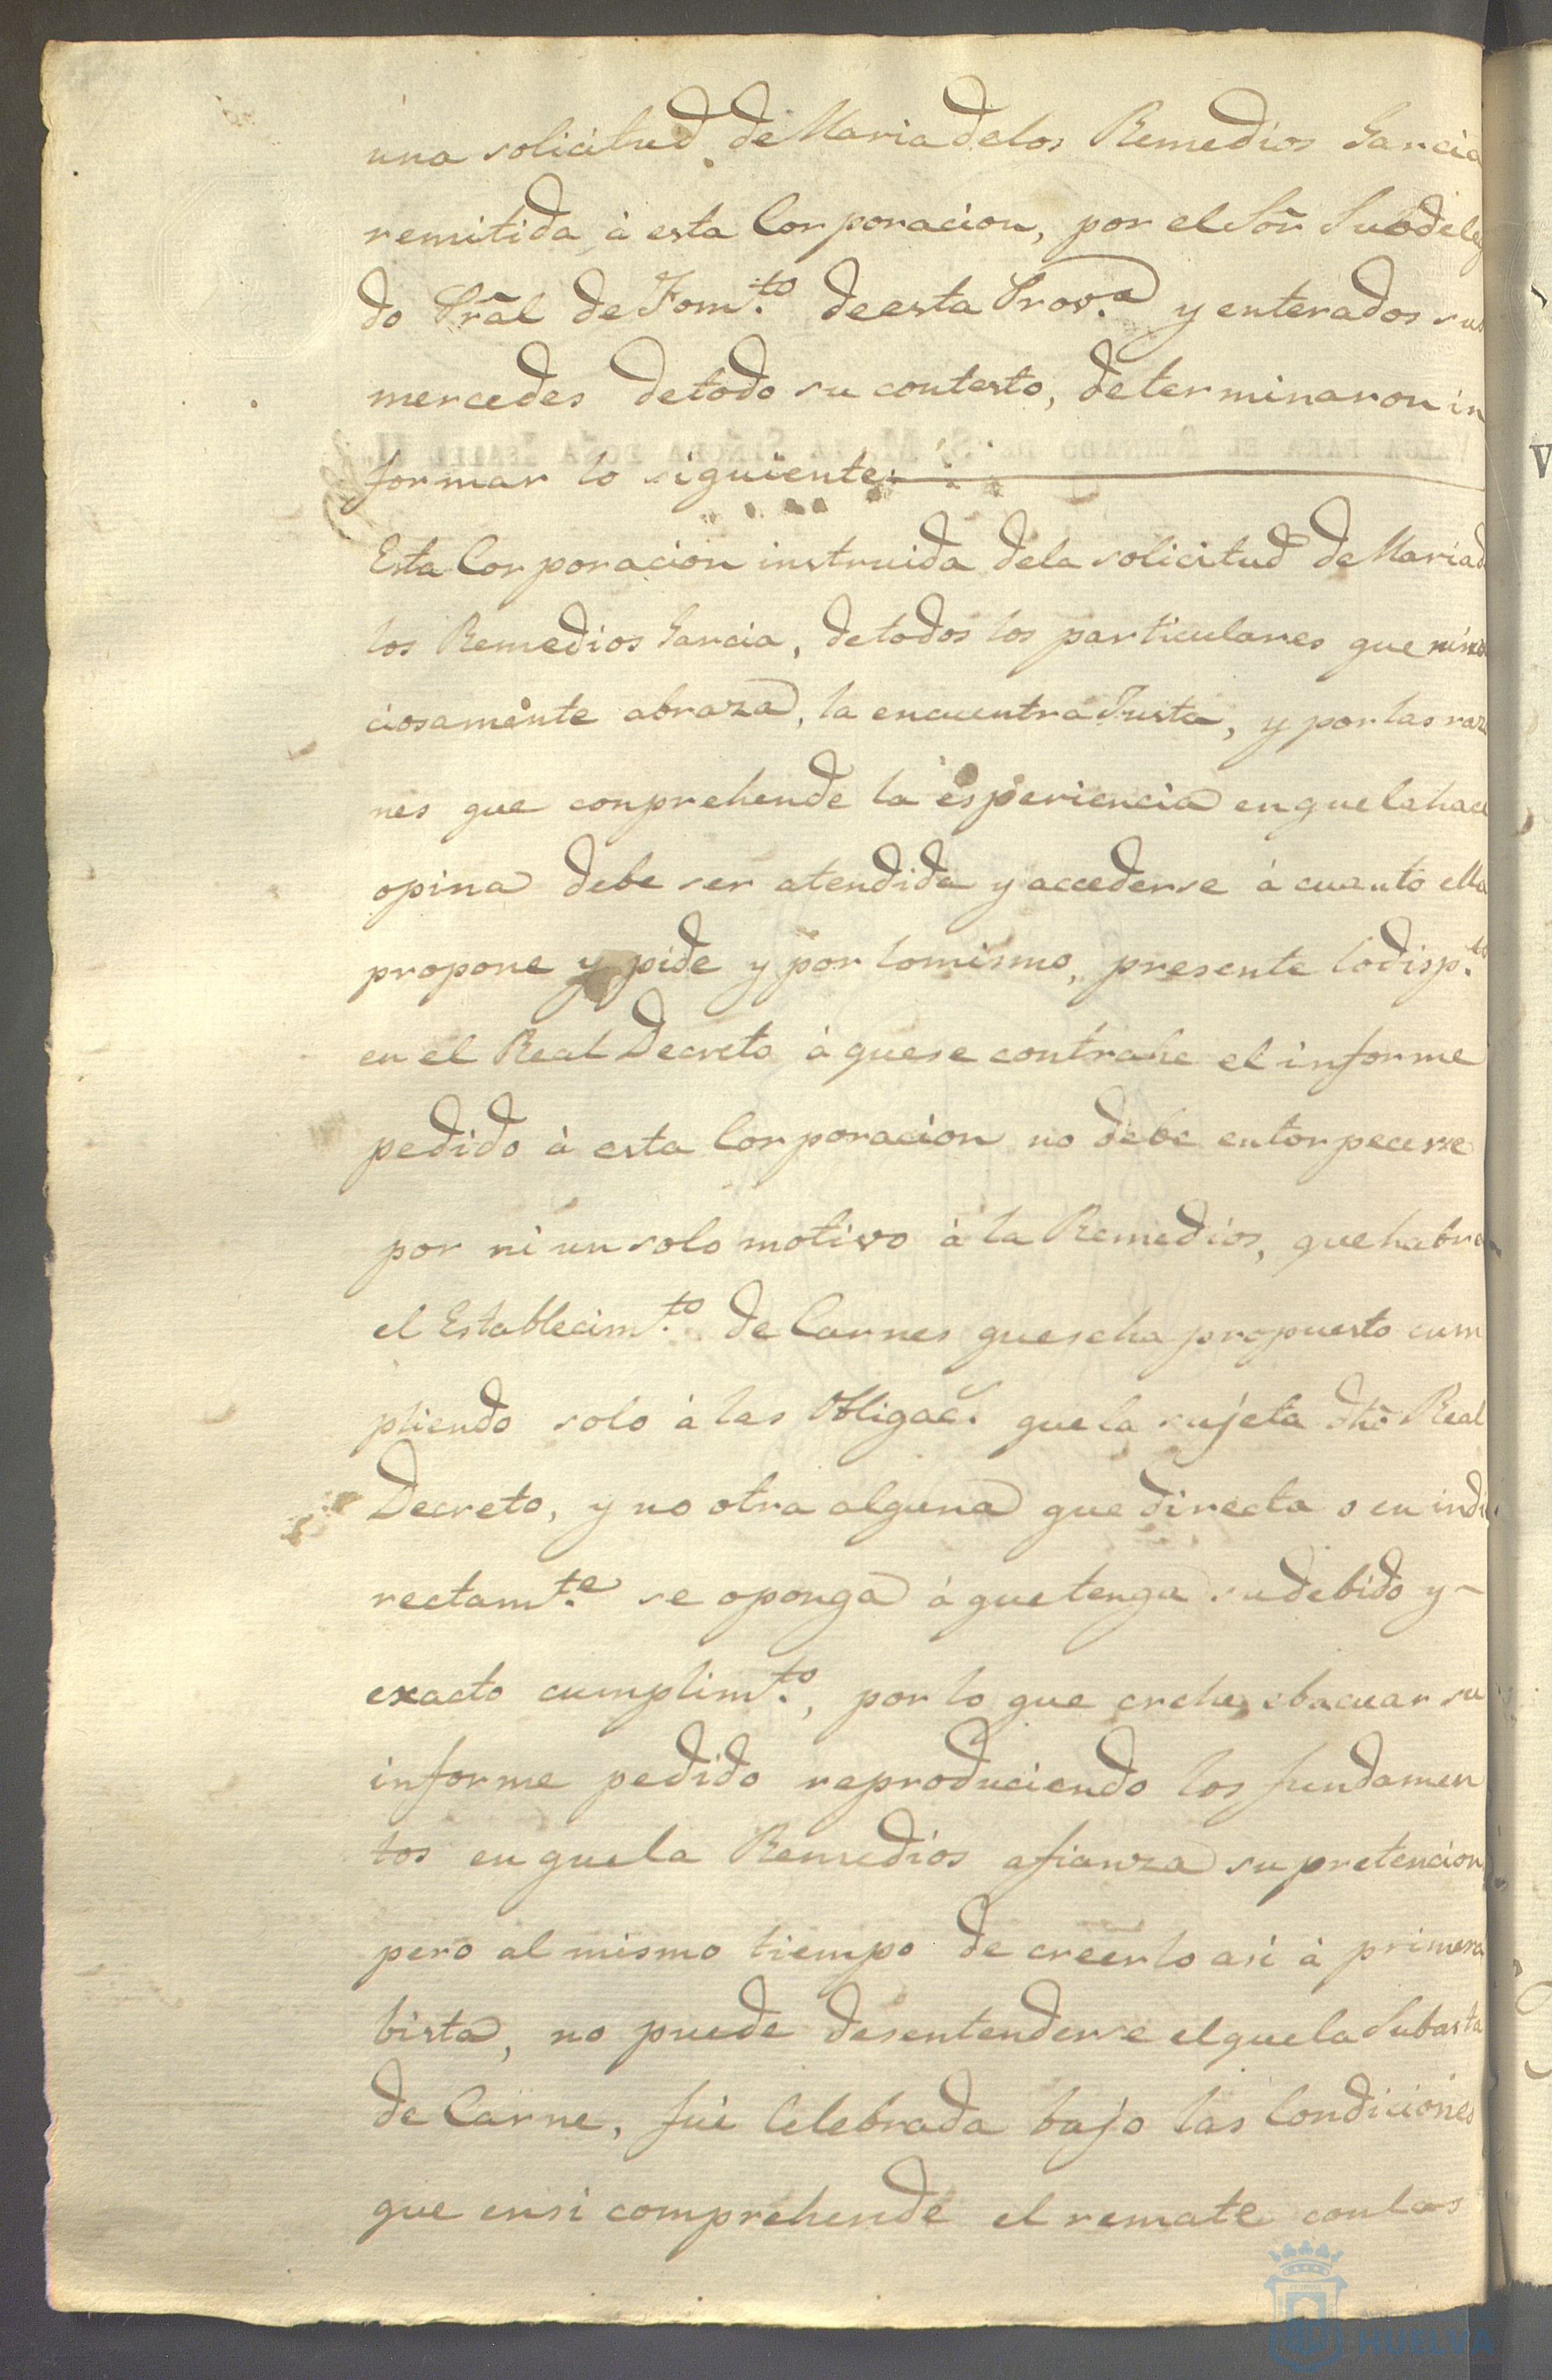 una solicitud de Maria de los Remedios Garcia
remitida á esta Corporacion, por el Sor̃ Subdele
do Pr̃al de Fom.to de esta Prov.a y enterados sus
mercedes de todo su contesto, determinaron in
formar lo siguiente:
Esta Corporacion instruida de la solicitud de Maria d
los Remedios Garcia, de todos los particulares que
ciosamente abraza, la encuentra Justa, y por las razo
nes que conprehende la esperiencia en que la hace
opina debe ser atendida y accederse á cuanto ella
propone y pide y por lo mismo, presente lo disp.to
en el Real Decreto á que se contrahe el informe
pedido á esta Corporacion no debe entorpecerse
por ni un solo motivo á la Remedios, que habra
el Establecim.to de Carnes que se ha propuesto cum
pliendo solo á las Obligac.s que la sujeta dho Real
Decreto, y no otra alguna que directa o en indi
rectam.te se oponga á que tenga su debido y
exacto cumplim.to, por lo que crehe ebacuar su
informe pedido reproduciendo los fundamen
tos en que la Remedios afianza su pretencion
pero al mismo tiempo de creerlo asi á primera
bista, no puede desentenderse el que la Subasta
de Carne, fué Celebrada bajo las Condiciones
que en si comprehende el remate con las
HUELVA